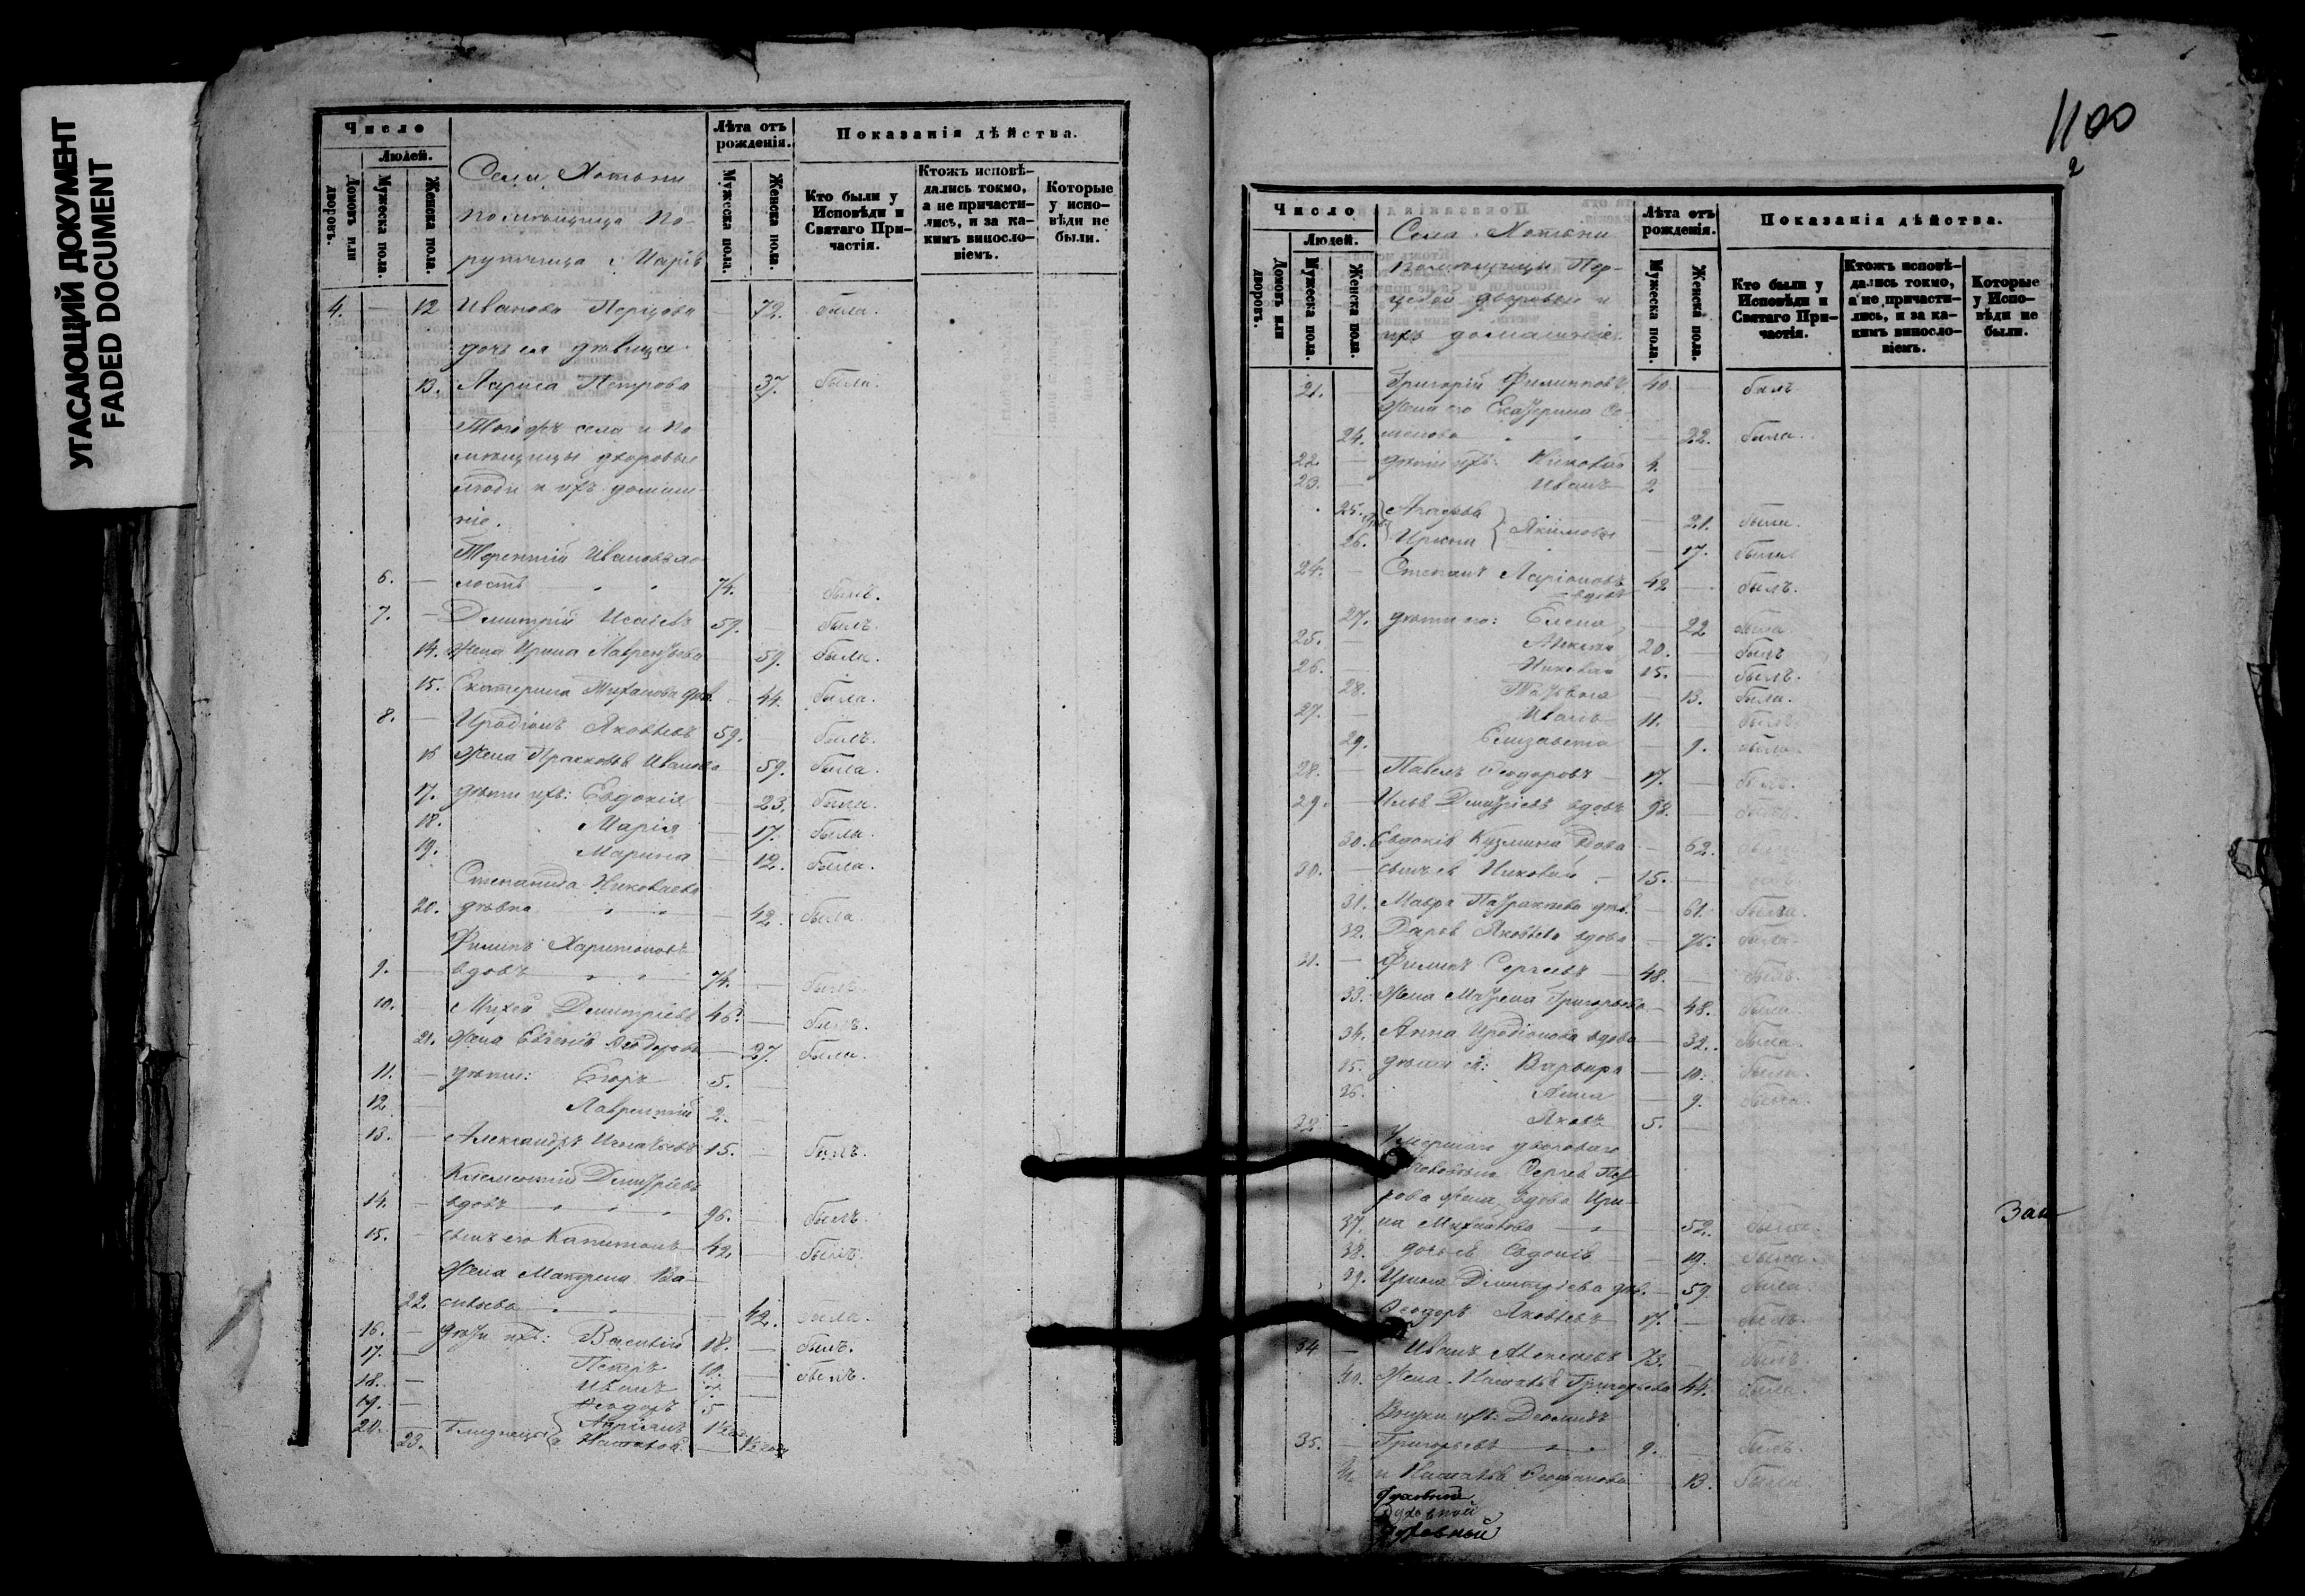 УГАСАЮЩИЙ ДОКУМЕНТ
FADED DOCUMENT
Число
Людей.
Домовъ или дворовъ.
Мужеска пола.
Женска пола.
Села Хотыни
помѣщица По
ручица Марія
Лѣта отъ рожденія.
Мужеска пола.
Женска пола.
Показанія дѣйства.
Кто были у Исповѣди и Святаго Причастія.
Ктожъ исповѣдались токмо, а не причастились, и за какимъ винословіемъ.
Которые у исповѣди не были.
4. — 12 Иванова Перцова — 72. была.
дочь ея дѣвица
13. Лариса Петрова — 37. была.
Того жъ села и по
мѣщицы дворовые
люди и ихъ домаш
ніе.
Терентій Ивановъ хо
6. — лостъ 74. былъ.
7. — Димитрій Исаевъ 59. — былъ.
14. Жена Ирина Лаврентьева — 59. была.
15. Екатерина дѣв. — 44. была.
8. — Иродіонъ Яковлевъ 59. — былъ.
16 Жена Прасковья Иванова 59. была.
17. дѣти ихъ: Евдокія — 23. была.
18. Марія — 17. была.
19. Марина — 12. была.
Степанида Николаева
20. дѣвка — 42. была.
Филипъ Харитоновъ
9. — вдовъ 74. — былъ.
10. — Михей Димитріевъ 46. — былъ.
21. Жена Евгенія Ѳеодорова — 27. была.
11. — дѣти: Егоръ 5. —
12 — Лаврентій 2. —
13. — Александръ Игнатьевъ 15. — былъ.
Климентій Димитріевъ
14. — вдовъ 96. — былъ.
15. — сынъ его Капитонъ 42. — былъ.
Жена Матрена Ва-
22. сильева — 42. была.
16. — дѣти ихъ: Василій 18. — былъ.
17. — Петръ 10. — былъ.
18. — Иванъ 7. —
19. — Ѳеодоръ 5
20. — близнецы Андріанъ 1½ год.
23. и Наталья — 1½ года
1100
2
Число
Людей.
Домовъ или дворовъ.
Мужеска пола.
Женска пола.
Села Хотыни
помѣщицы Пер-
цевой дворовые и
ихъ домашніе.
Лѣта отъ рожденія.
Мужеска пола.
Женска пола.
Показанія дѣйства.
Кто были у Исповѣди и Святаго Причастія.
Ктожъ исповѣдались токмо, а не причастились, и за какимъ винословіемъ.
Которые у Исповѣди не были.
21. — Григорій Филипповъ 40. — былъ
Жена его Екатерина Се-
24. менова — 22. была.
22. — дѣти ихъ: Николай 4. —
23. — Иванъ 2 —
25. Агафья Якимовы — 21. была.
26. Ирина — 17. была
24. — Степанъ Ларіоновъ 42 — былъ.
вдовъ
27. дѣти его: Елена — 22 была
25. — Алексей 20. — былъ
26. — Николай 15. — былъ.
28. Татьяна — 13. была.
27. — Иванъ 11. — былъ
29. Елизавета — 9. была.
28. — Павелъ Ѳеодоровъ — 17. — былъ.
29. — Илья Димитріевъ вдовъ 98. — былъ.
30. Евдокія Кузмина вдова — 62. была
30. — сынъ ея Николай — 15. — былъ
31. Мавра дѣв. — 61. была.
32. Дарья Яковлева вдова — 76. была.
31. — Филипъ Сергеевъ — 48. — былъ.
33. Жена Матрена Григорьева — 48. была.
34. Анна Иродіонова вдова — 32. была.
35. дѣти ея: Варвара — 10. была.
36. Анна — 9. была.
32 — Яковъ 5. —
Умершаго двороваго
человѣка Сергея Пет
рова жена вдова Ири-
37. на Михайлова — 52. была.
38. дочь ея Евдокія — 19. была.
39. Ирина Димитріева дѣв. — 59 была.
— Ѳеодоръ Яковлевъ — 17. — былъ.
34 — Иванъ Алексеевъ 73. — былъ.
40. Жена Наталья Григорьева 44. была.
Внуки ихъ: Деомидъ
35. — Григорьевъ 9. — былъ.
41. и Наталья — 13. была
Духовный
Духовной
Духовный
Зап